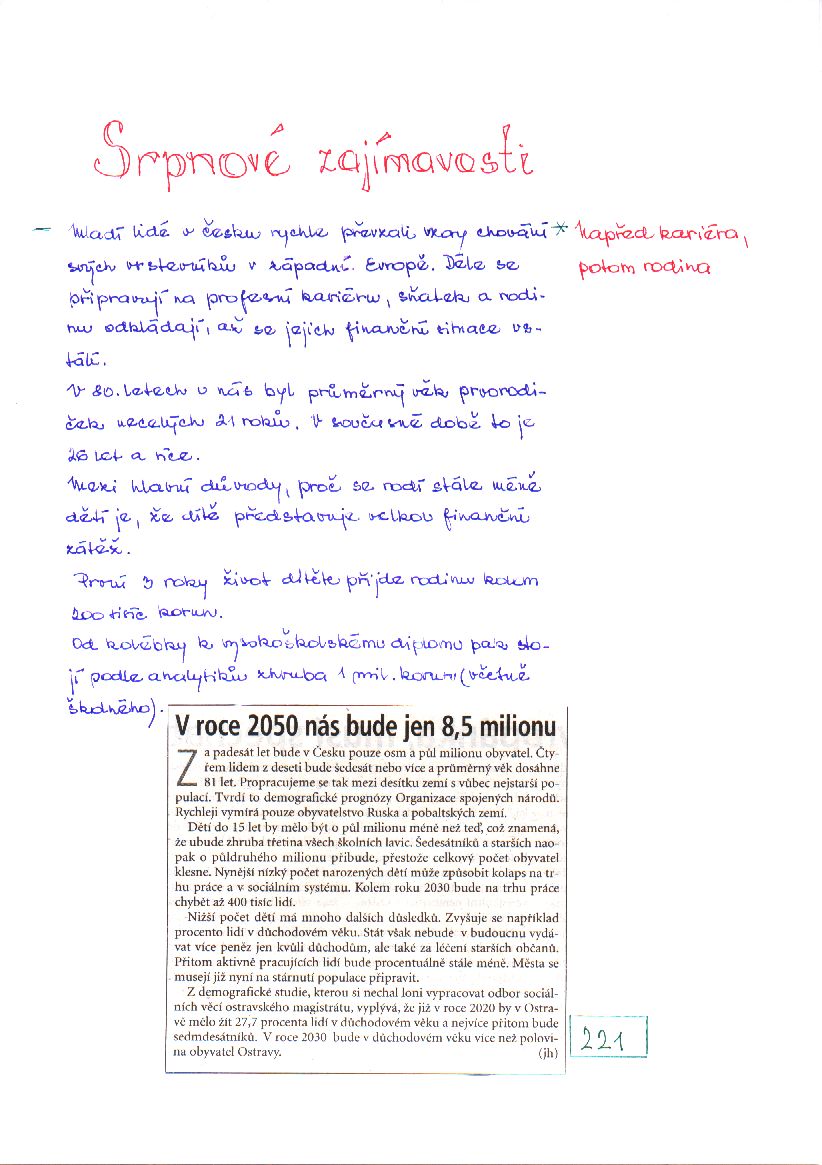 Srpnové zajímavosti
– Mladí lidé v Česku rychle převzali vzory chování *
Napřed kariéra,
potom rodina
svých vrstevníků v západní. Evropě. Déle se
připravují na profesní kariéru, sňatek a rodi-
nu odkládají, až se jejich finanční situace us-
tálí.
V 80. letech u nás byl průměrný věk prvorodi-
ček necelých 21 roků. V současné době to je
26 let a více.
Mezi hlavní důvody, proč se rodí stále méně
dětí je, že dítě představuje velkou finanční
zátěž.
První 3 roky život dítěte přijde rodinu kolem
200 tisíc korun.
Od kolébky k vysokoškolskému diplomu pak sto-
jí podle analytiků zhruba 1 mil. korun (včetně
školného).
V roce 2050 nás bude jen 8,5 milionu
Za padesát let bude v Česku pouze osm a půl milionu obyvatel. Čty-
řem lidem z deseti bude šedesát nebo více a průměrný věk dosáhne
81 let. Propracujeme se tak mezi desítku zemí s vůbec nejstarší po-
pulací. Tvrdí to demografické prognózy Organizace spojených národů.
Rychleji vymírá pouze obyvatelstvo Ruska a pobaltských zemí.
Dětí do 15 let by mělo být o půl milionu méně než teď, což znamená,
že ubude zhruba třetina všech školních lavic. Šedesátníků a starších nao-
pak o půldruhého milionu přibude, přestože celkový počet obyvatel
klesne. Nynější nízký počet narozených dětí může způsobit kolaps na tr-
hu práce a v sociálním systému. Kolem roku 2030 bude na trhu práce
chybět až 400 tisíc lidí.
Nižší počet dětí má mnoho dalších důsledků. Zvyšuje se například
procento lidí v důchodovém věku. Stát však nebude v budoucnu vydá-
vat více peněz jen kvůli důchodům, ale také za léčení starších občanů.
Přitom aktivně pracujících lidí bude procentuálně stále méně. Města se
musejí již nyní na stárnutí populace připravit.
Z demografické studie, kterou si nechal loni vypracovat odbor sociál-
ních věcí ostravského magistrátu, vyplývá, že již v roce 2020 by v Ostra-
vě mělo žít 27,7 procenta lidí v důchodovém věku a nejvíce přitom bude
sedmdesátníků. V roce 2030 bude v důchodovém věku více než polovi-
na obyvatel Ostravy. (jh)
221